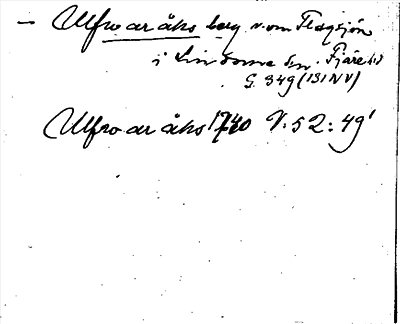 – Ulfvo ar åks berg v. om Flagsjön
i Lindome sn. Fjäre hd
G. 349 (131 NV)
Ulfvo ar åks 1740 V. 52: 49'